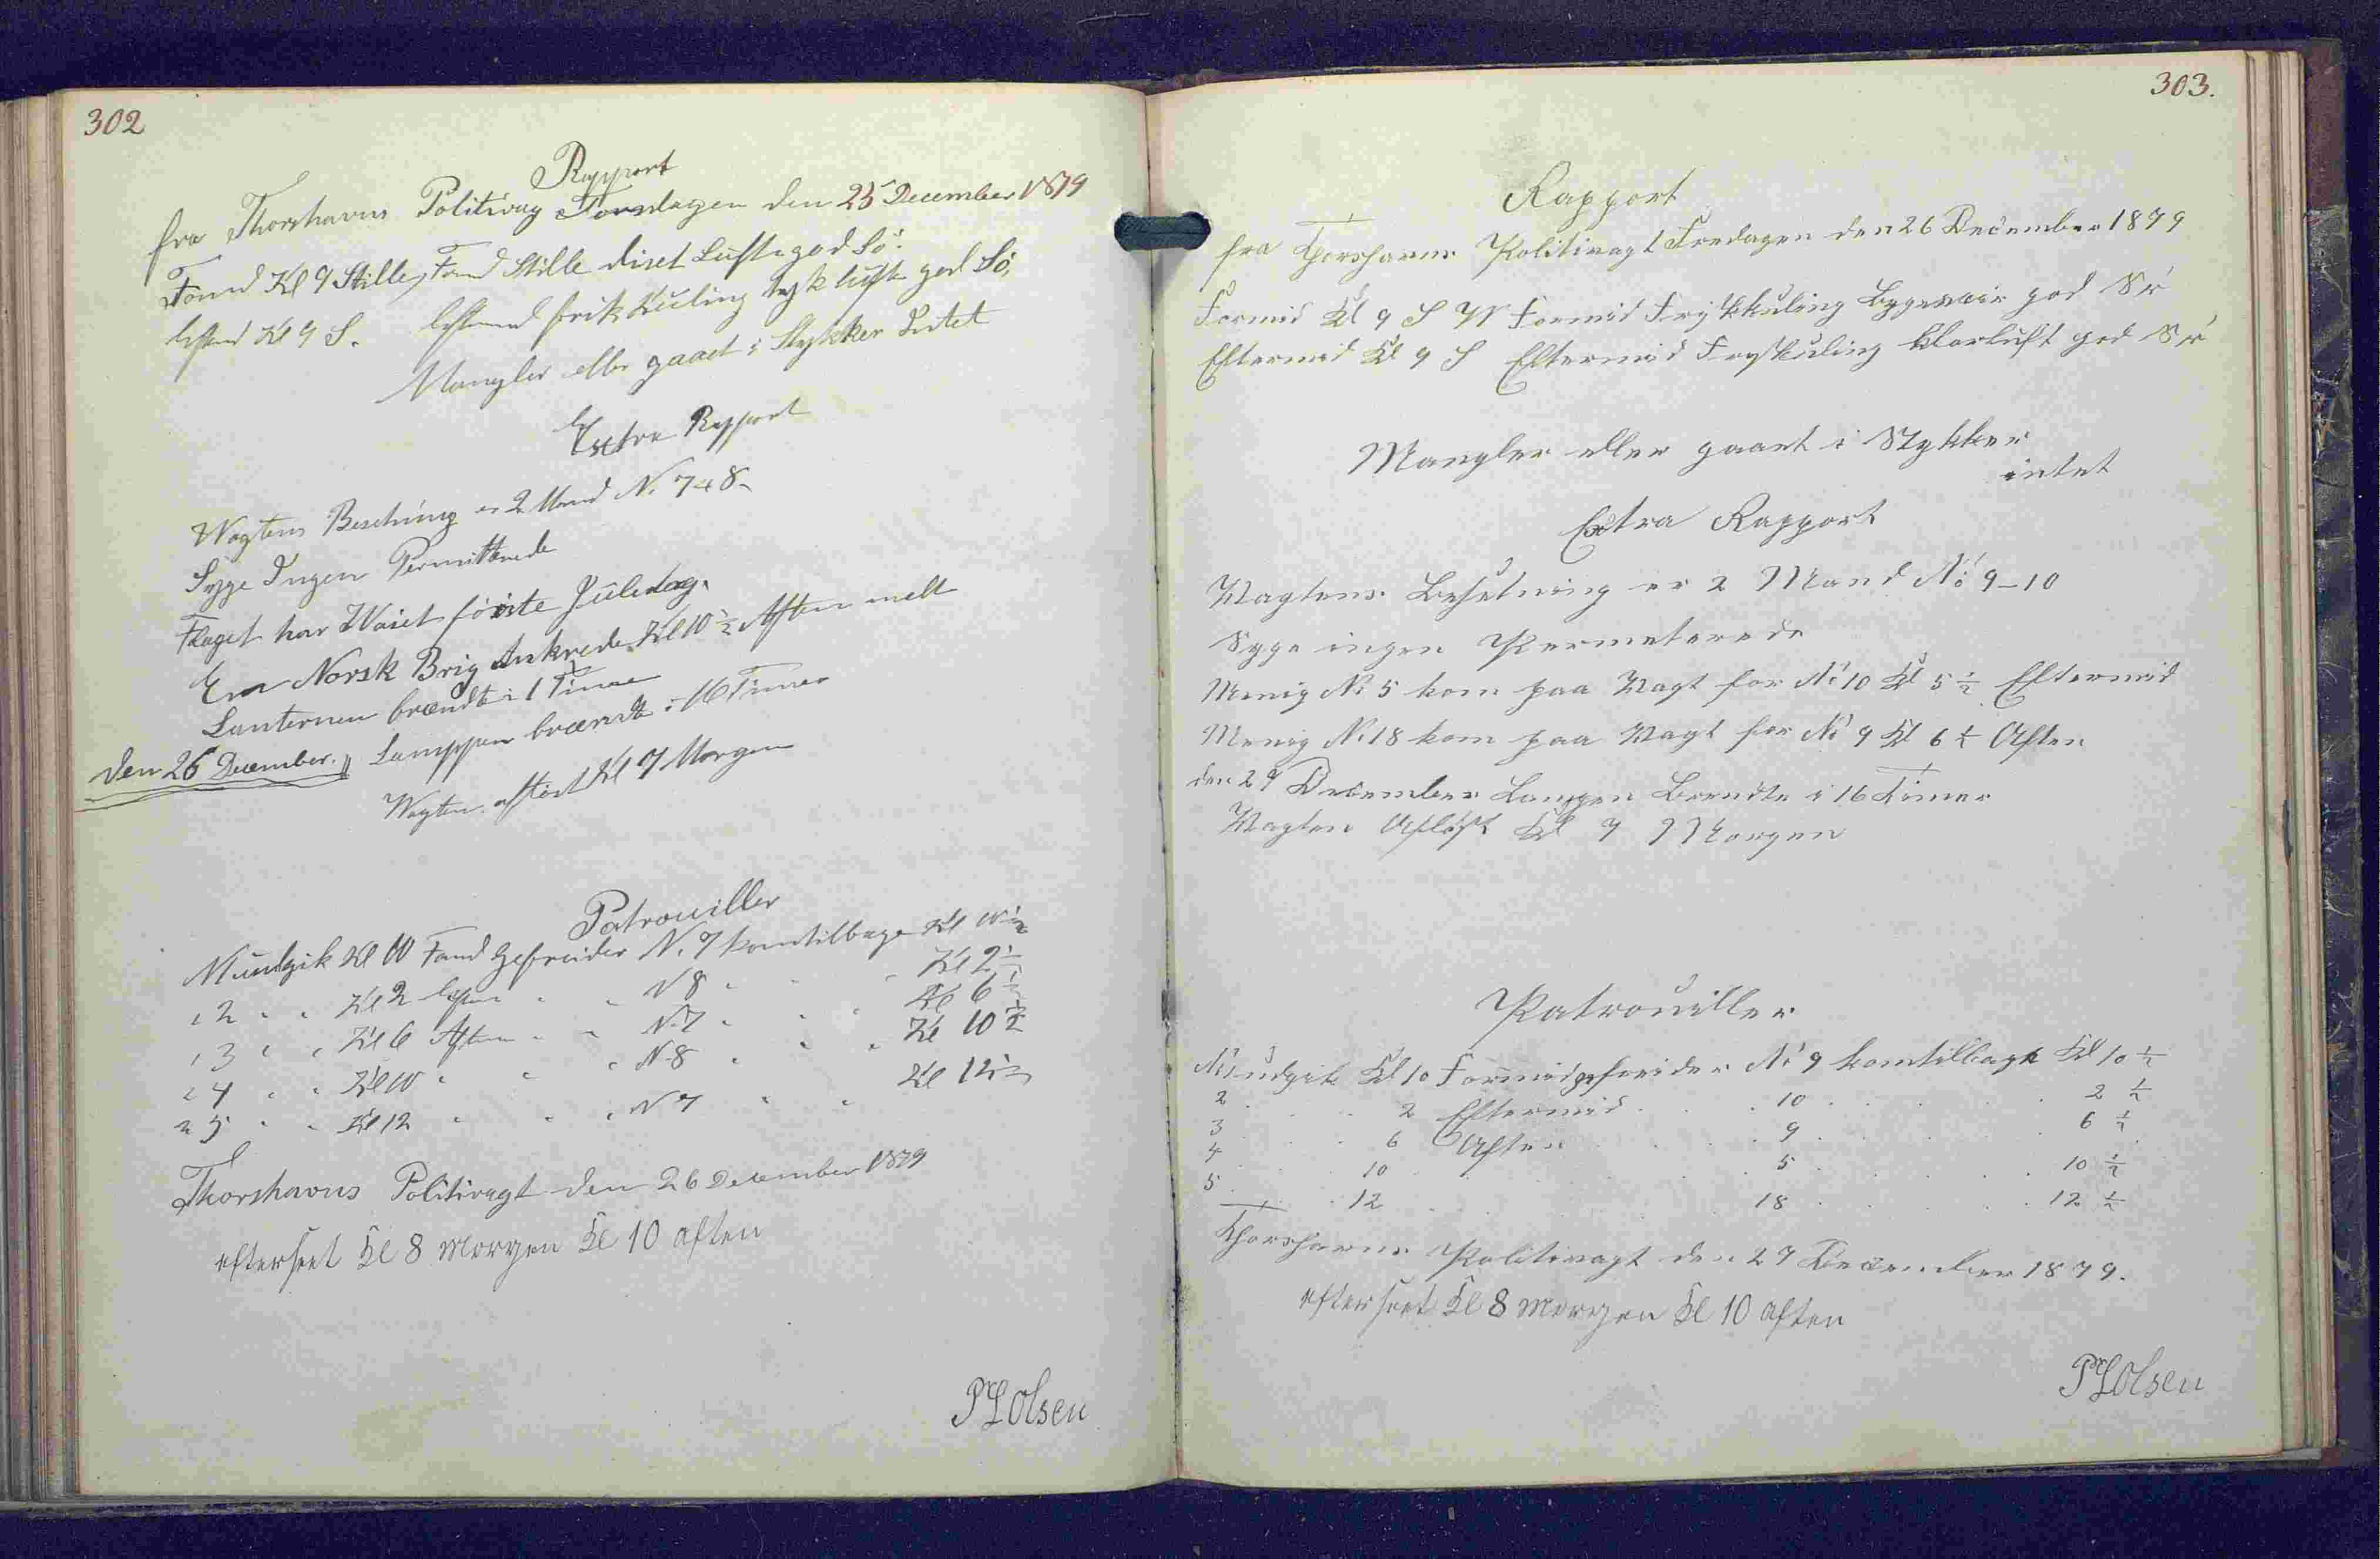 302
Rapport
fra Thorshavns Politivagt Torsdagen den 25 December 1879
Formd Kl 9 Stille, Formd Stille diset Luft god Sö.
Eftmd Kl 9 S. Eftermd frisk Kuling tyk luft god Sö,
Mangler eller gaaet i Stykker Intet
Extra Rapport
Wagtens Besetning er 2 Mand No 7 & 8
Syge Ingen Permitterede
Flaget har Waiet förste Juledag.
En Norsk Brig Ankrede Kl 10 1/2 Aften
Lanternen brændte i 1 Time
den 26 December. Lamppen brændte i 16 Timer
Wagten aflöst Kl 7 Morgen
Patrouiller
N 1 udgik Kl 10 Formd Gefreider N. 7 kom tilbage Kl 10 1/2
" 2 " " Kl 2 Eftm " " N 8 " " " Kl 2 1/2
" 3 " " Kl 6 Aften " " N. 7 " " " Kl 6 1/2
" 4 " " Kl 10 " " " N. 8 " " " Kl 10 1/2
" 5 " " Kl 12 " " " N 7 " " Kl 12 1/2
Thorshavns Politivagt den 26 December 1879
efterseet Kl 8 Morgen Kl 10 aften
P L Olsen
303.
Rapport
fra Thorshavns Politivagt Fredagen den 26 December 1879
Formid Kl 9 S W Formid Friskkuling Bygeveir god Sö
Eftermid Kl 9 S Eftermid Friskkuling klarluft god Sö
Mangler eller gaaet i Stykker
intet
Extra Rapport
Wagtens Besetning er 2 Mand No 9-10
Syge ingen Permeterede
Menig No 5 kom paa Vagt for No 10 Kl 5 1/2 Eftermid
Menig No 18 kom paa Vagt for No 9 Kl 6 1/2 Aften
den 27 December Lampen Brendte i 16 Timer
Vagten Aflöst Kl 7 Morgen
Patrouiller
No 1 udgik Kl 10 Formid gefreider No 9 kom tilbage Kl 10 1/2
2 . . . 2 Eftermid . . . 10 . . . . 2 1/2
3 . . . 6 Aften . . . 9 . . . . 6 1/2
4 . . . 10 . . . . 5 . . . . 10 1/2
5 . . . 12 . . . . 18 . . . . 12 1/2
Thorshavns Politivagt den 27 December 1879.
efterseet Kl 8 Morgen Kl 10 aften
P L Olsen